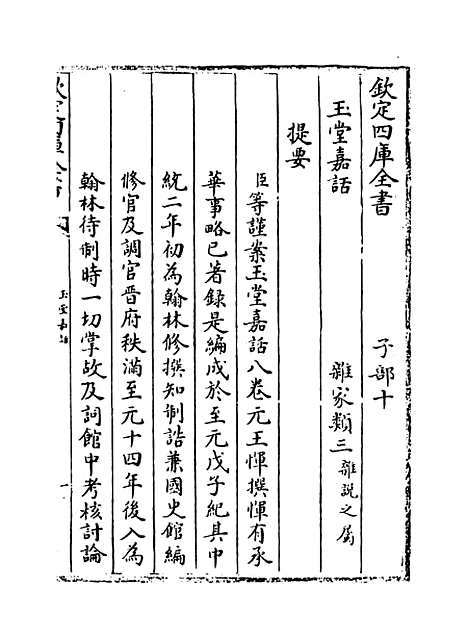 欽定四庫全書　子部十
玉堂嘉話　雜家類三 雜說之屬
提要
臣等謹案玉堂嘉話八卷元王惲撰惲有承
華事略已著録是編成於至元戊子紀其中
統二年初為翰林修撰知制誥兼國史館編
修官及調官晉府秩滿至元十四年後入為
翰林待制時一切掌故及詞館中考核討論
欽定四庫全書
玉堂嘉話
一